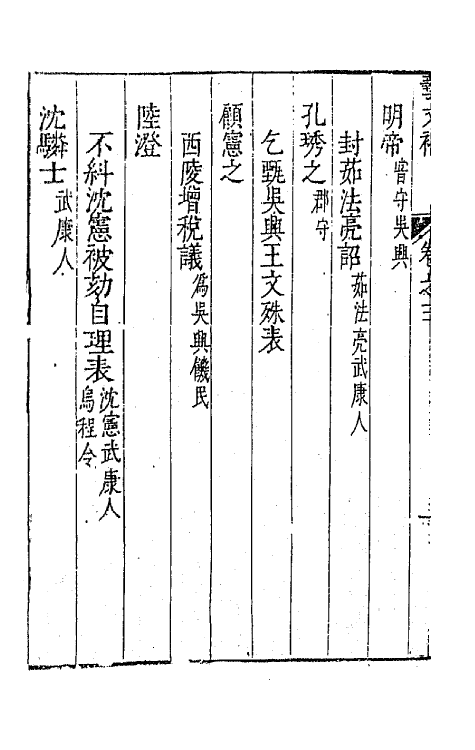 藝文補 卷之三
明帝 嘗守吳興
封茹法亮詔 茹法亮武康人
孔琇之 郡守
乞甄吳興王文殊表
顧憲之
西陵增稅議 為吳興饑民
陸澄
不糾沈憲被劾自理表 沈憲武康人烏程令
沈驎士 武康人